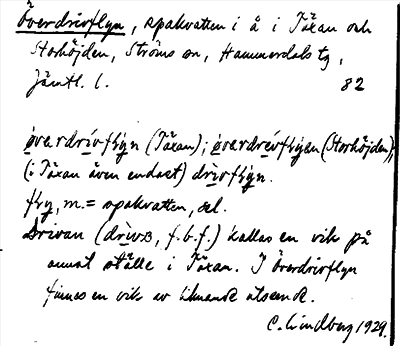 Överdrivflyn, spakvatten i å i Täxan och
Storhöjden, Ströms sn, Hammerdals tg,
Jämtl. l. 82
øverdrívflẏn (Täxan); øverdrévflẏen (Storhöjden);
(i Täxan även endast) drìvflẏn.
fly, m. = spakvatten, sel.
Drivan (drìvɐ, f.b.f.) kallas en vik på
annat ställe i Täxan. I Överdrivflyn
finnes en vik av liknande utseende.
C. Lindberg 1929.